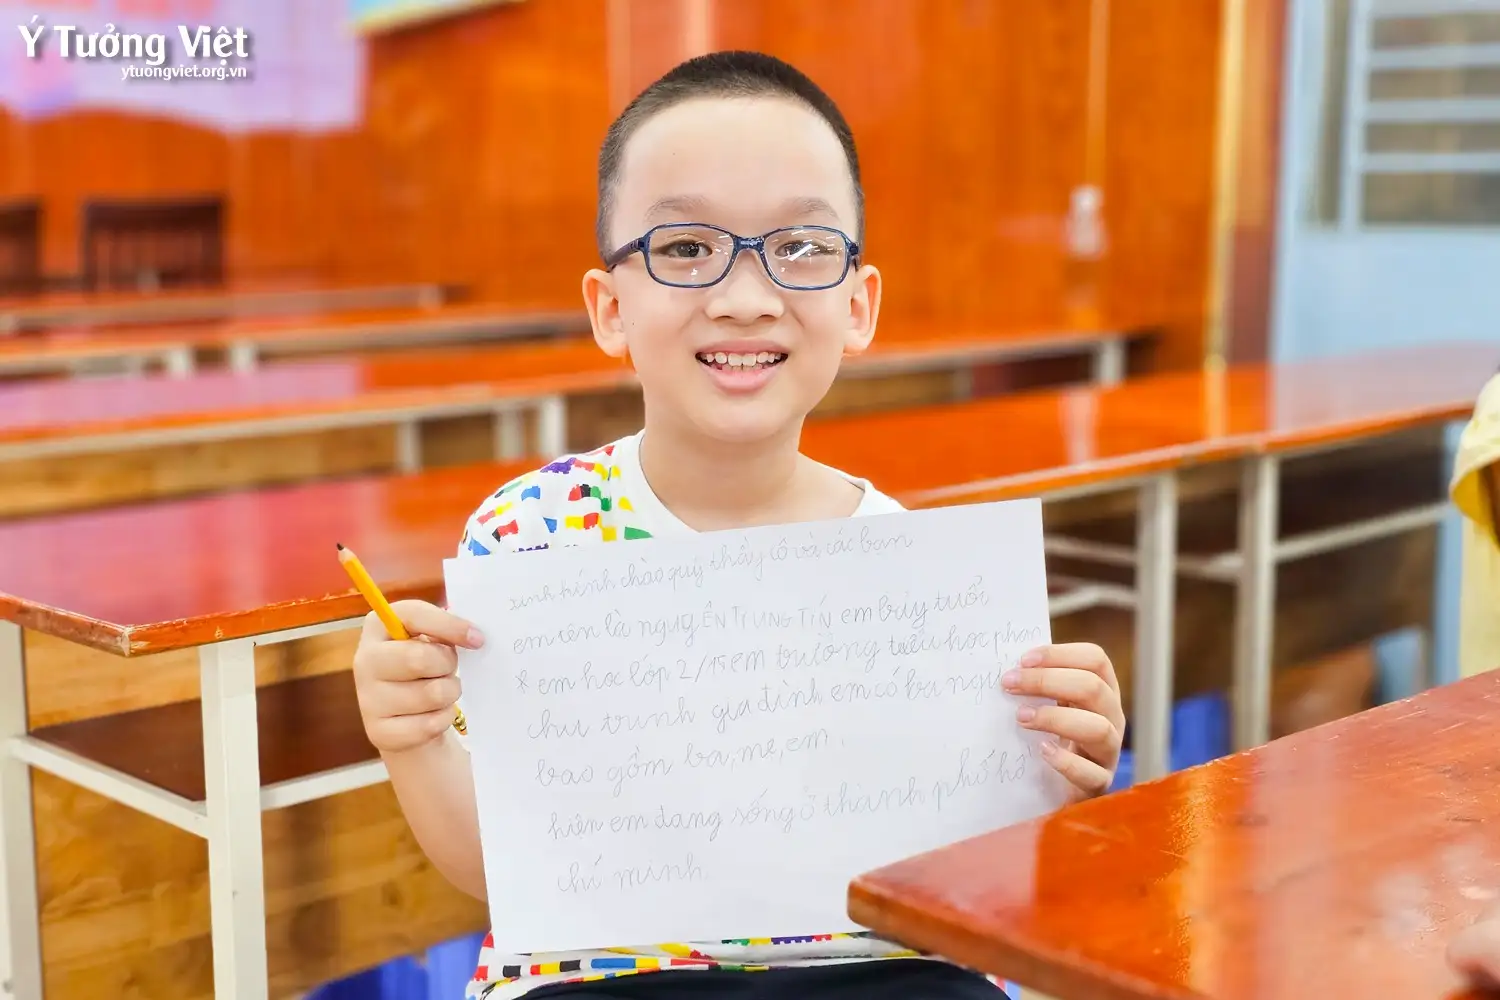 Ý Tưởng Việt
ytuongviet.org.vn
xinh kính chào quý thầy cô và các bạn
em tên là nguyỄN TRUNG TÍN em bảy tuổi
* em học lớp 2/15 em trường tiểu học phan
chu trinh gia đình em có ba người
bao gồm ba, mẹ, em.
hiện em đang sống ở thành phố hồ
chí minh.